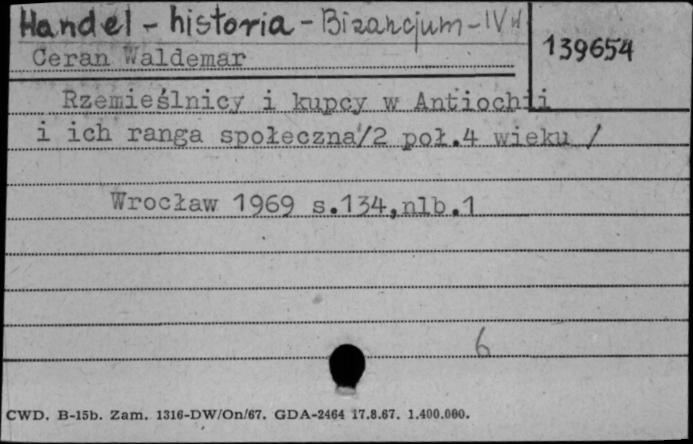 Handel - historia - Bizancjum - IV w
139654
Ceran Waldemar
Rzemieślnicy i kupcy w Antiochii
i ich ranga społeczna/2 poł.4 wieku /
Wrocław 1969 s.134,nlb.1
6
CWD. B-15b. Zam. 1316-DW/On/67. GDA-2464 17.8.67. 1.400.000.